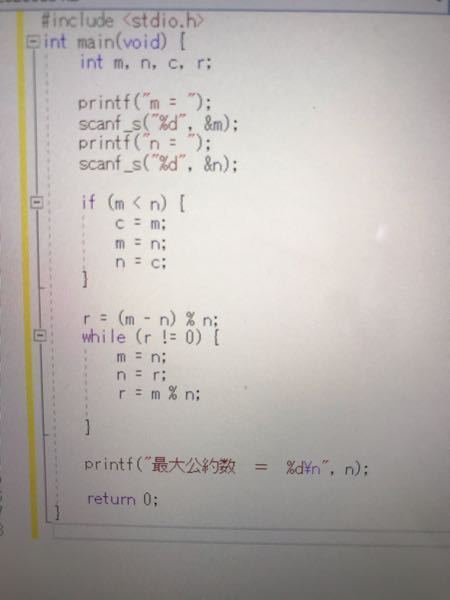 #include <stdio.h>
int main(void) {
int m, n, c, r;
printf("m = ");
scanf_s("%d", &m);
printf("n = ");
scanf_s("%d", &n);
if (m < n) {
c = m;
m = n;
n = c;
}
r = (m - n) % n;
while (r != 0) {
m = n;
n = r;
r = m % n;
}
printf("最大公約数 = %d¥n", n);
return 0;
}